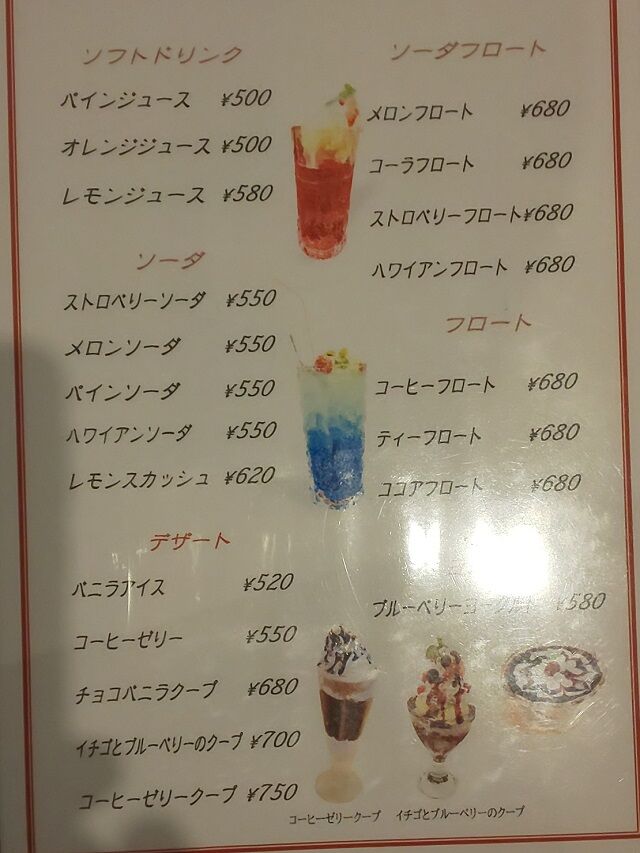 ソフトドリンク
パインジュース ¥500
オレンジジュース ¥500
レモンジュース ¥580
ソーダ
ストロベリーソーダ ¥550
メロンソーダ ¥550
パインソーダ ¥550
ハワイアンソーダ ¥550
レモンスカッシュ ¥620
デザート
バニラアイス ¥520
コーヒーゼリー ¥550
チョコバニラクープ ¥680
イチゴとブルーベリーのクープ ¥700
コーヒーゼリークープ ¥750
ソーダフロート
メロンフロート ¥680
コーラフロート ¥680
ストロベリーフロート ¥680
ハワイアンフロート ¥680
フロート
コーヒーフロート ¥680
ティーフロート ¥680
ココアフロート ¥680
ブルーベリーヨーグルト ¥580
コーヒーゼリークープ
イチゴとブルーベリーのクープ